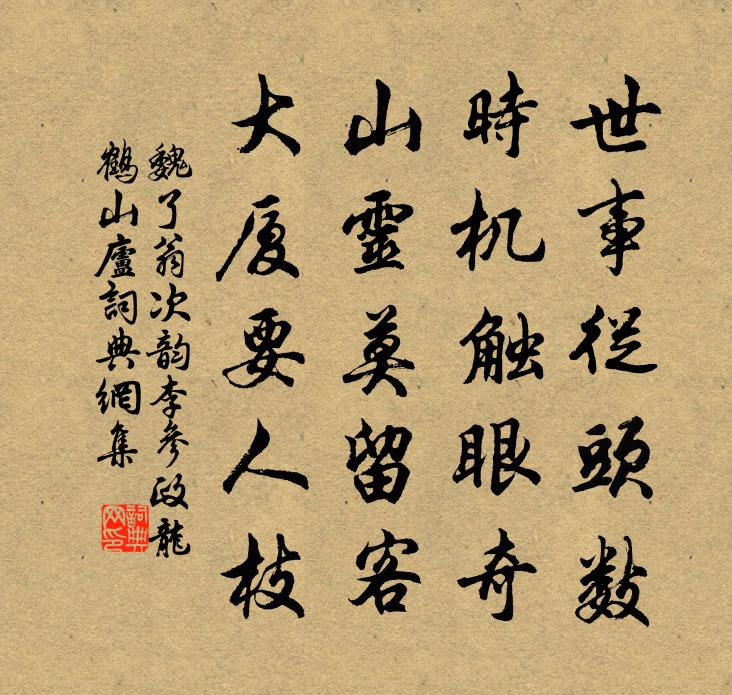 世事從頭數
時机触眼奇
山靈莫留客
大厦要人枝
魏了翁次韵李參政龍
鶴山廬詞典網集
詞典網印